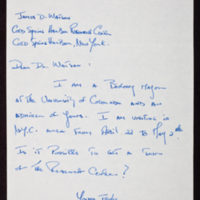 James D. Watson
Cold Spring Harbor Research Center
Cold Spring Harbor, New York.
Dear Dr. Watson:
I am a Botany Major
at the University of Colorado and an
admirer of yours. I am waiting in
N.Y.C. area from April 22 to May 2nd.
Is it Possible to get a tour
of the Research Center?
Yours Truly